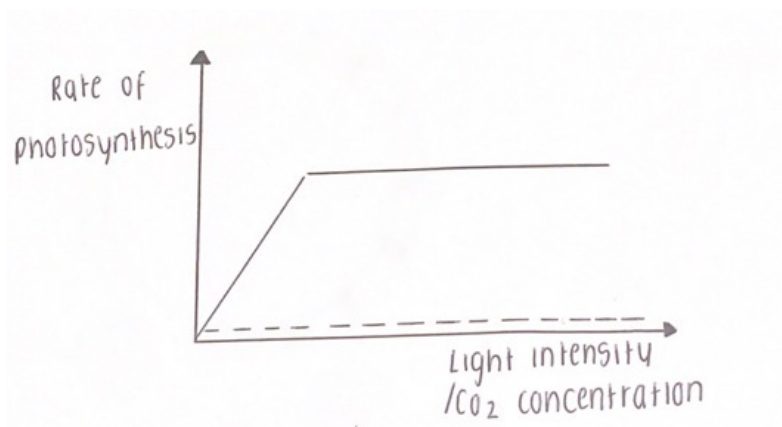 Rate of
photosynthesis
Light intensity
/CO2 concentration